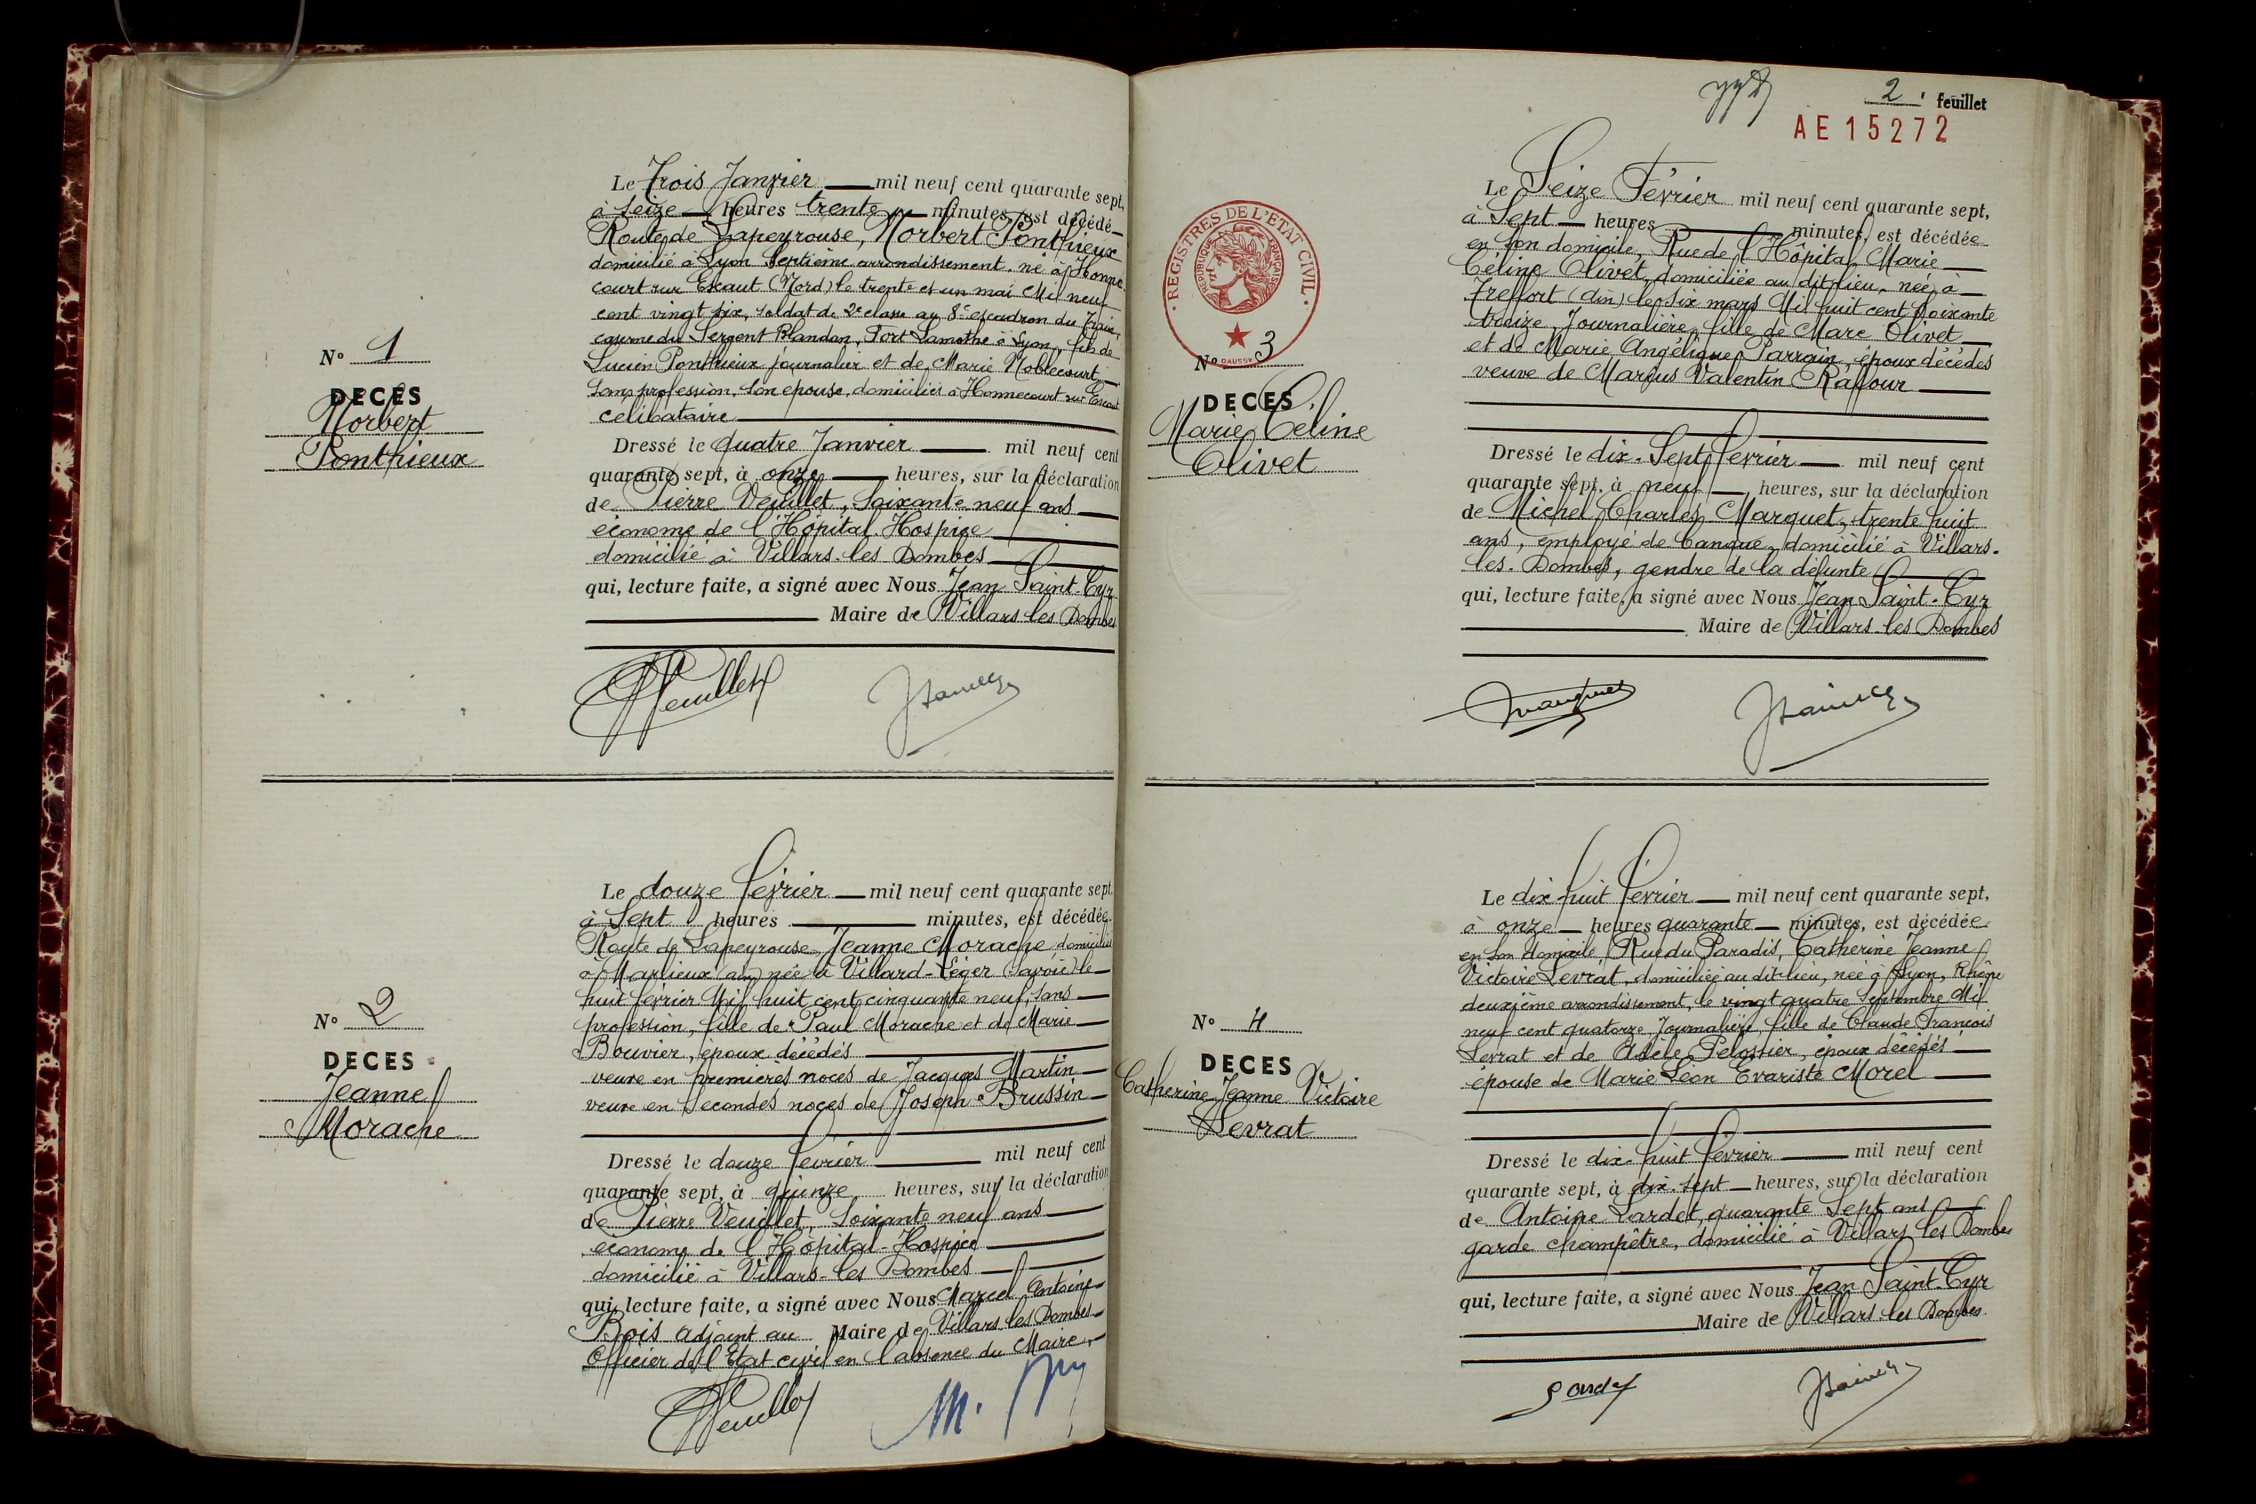 N° 1
DECES
Norbert
Ponthieux
Le trois Janvier mil neuf cent quarante sept,
à seize heures trente minutes, est décédé
Route de Lapeyrouse, Norbert Ponthieux
domicilié à Lyon septième arrondissement, né à Honne-
court sur Escaut (Nord) le trente et un mai Mil neuf
cent vingt six, soldat de 2e classe au 8e escadron du Train,
caserne du Sergent Blandan, Fort Lamothe à Lyon, fils de
Lucien Ponthieux journalier et de Marie Noblécourt
sans profession, son épouse, domiciliés à Honnecourt sur Escaut
célibataire
Dressé le quatre Janvier mil neuf cent
quarante sept, à onze heures, sur la déclaration
de Pierre Veuillet, soixante neuf ans
économe de l'Hôpital-Hospice
domicilié à Villars-les Dombes
qui, lecture faite, a signé avec Nous Jean Saint-Cyr
Maire de Villars-les Dombes
N° 2
DECES
Jeanne
Morache
Le douze février mil neuf cent quarante sept,
à sept heures minutes, est décédée
Route de Lapeyrouse, Jeanne Morache domiciliée
à Marlieux (ain) née à Villard-Léger (Savoie) le
huit février Mil huit cent cinquante neuf, sans
profession, fille de Paul Morache et de Marie
Bouvier, époux décédés
veuve en premières noces de Jacques Martin
veuve en secondes noces de Joseph Brussin
Dressé le douze février mil neuf cent
quarante sept, à quinze heures, sur la déclaration
de Pierre Veuillet, soixante neuf ans
économe de l'Hôpital-Hospice
domicilié à Villars-les Dombes
qui, lecture faite, a signé avec Nous Marcel Antoine
Bois adjoint au Maire de Villars les Dombes
Officier de l'Etat-civil en l'absence du Maire
2 feuillet
AE15272
REGISTRES DE L'ETAT CIVIL
REPUBLIQUE FRANÇAISE
N° 3
DECES
Marie Céline
Olivet
Le Seize Février mil neuf cent quarante sept,
à Sept heures minutes, est décédée
en son domicile, Rue de l'Hôpital, Marie
Céline Olivet, domiciliée au dit lieu, née à
Treffort (ain) le six mars Mil huit cent soixante
treize, Journalière, fille de Marc Olivet
et de Marie Angélique Parrain, époux décédés
veuve de Marcus Valentin Raffour
Dressé le dix-Sept février mil neuf cent
quarante sept, à neuf heures, sur la déclaration
de Michel Charles Marquet, trente huit
ans, employé de banque, domicilié à Villars-
les-Dombes, gendre de la défunte
qui, lecture faite, a signé avec Nous Jean Saint-Cyr
Maire de Villars-les Dombes
N° 4
DECES
Catherine Jeanne Victoire
Levrat
Le dix huit février mil neuf cent quarante sept,
à onze heures quarante minutes, est décédée
en son domicile Rue du Paradis, Catherine Jeanne
Victoire Levrat, domiciliée au dit-lieu, née à Lyon, Rhône
deuxième arrondissement, le vingt quatre Septembre Mil
neuf cent quatorze, Journalière, fille de Claude François
Levrat et de Adèle Pelossier, époux décédés
épouse de Marie Léon Evariste Morel
Dressé le dix-huit février mil neuf cent
quarante sept, à dix-sept heures, sur la déclaration
de Antoine Lardet, quarante Sept ans
garde champêtre, domicilié à Villars les Dombes
qui, lecture faite, a signé avec Nous Jean Saint-Cyr
Maire de Villars-les Dombes